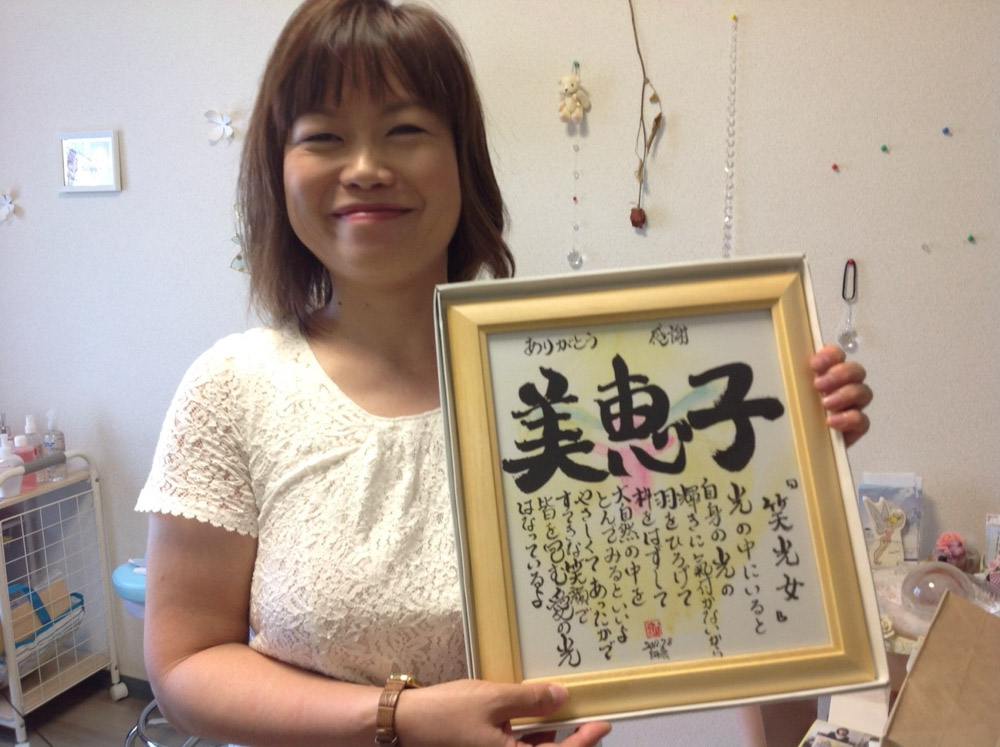 ありがとう 感謝
美恵子
『笑光女』
光の中にいると
自身の光の
輝きに気付かないから
羽をひろげて
枠をはずして
大自然の中を
とんでみるといいよ
やさしくてあったかで
すてきな笑顔で
皆を包む愛の光
はなっているよ